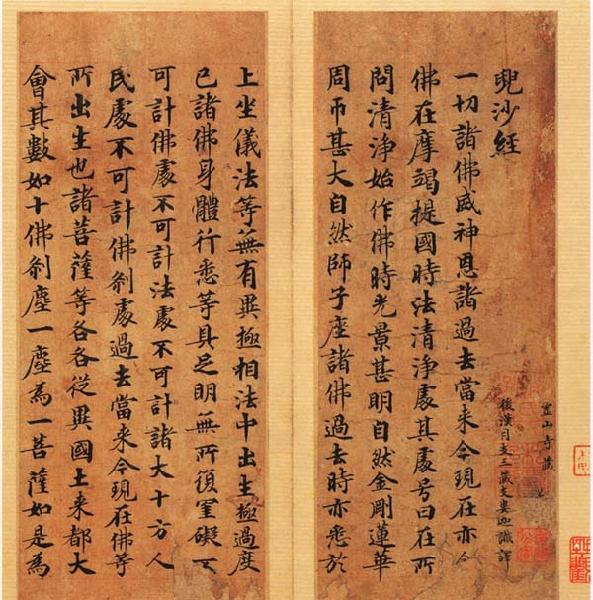 靈山寺藏
兜沙經
後漢月支三藏支婁迦讖譯
一切諸佛威神恩諸過去當来今現在亦尒
佛在摩竭提國時法清淨處其處号曰在所
問清淨始作佛時光景甚明自然金剛蓮華
周帀甚大自然師子座諸佛過去時亦悉於
上坐儀法等無有異極相法中出生極過度
已諸佛身體行悉等具足明無所復罣礙不
可計佛處不可計法處不可計諸大十方人
民處不可計佛剎處過去當来今現在佛等
所出生也諸菩薩等各各從異國土来都大
會其數如十佛剎塵一塵為一菩薩如是為